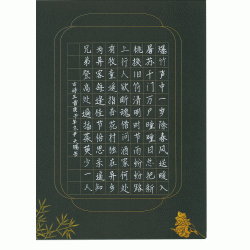 爆竹声中一岁除春风送暖入
屠苏千门万户曈曈日总把新
桃换旧符清明时节雨纷纷路
上行人欲断魂借问酒家何处
有牧童遥指杏花村独在异乡
为异客每逢佳节倍思亲遥知
兄弟登高处遍插茱萸少一人